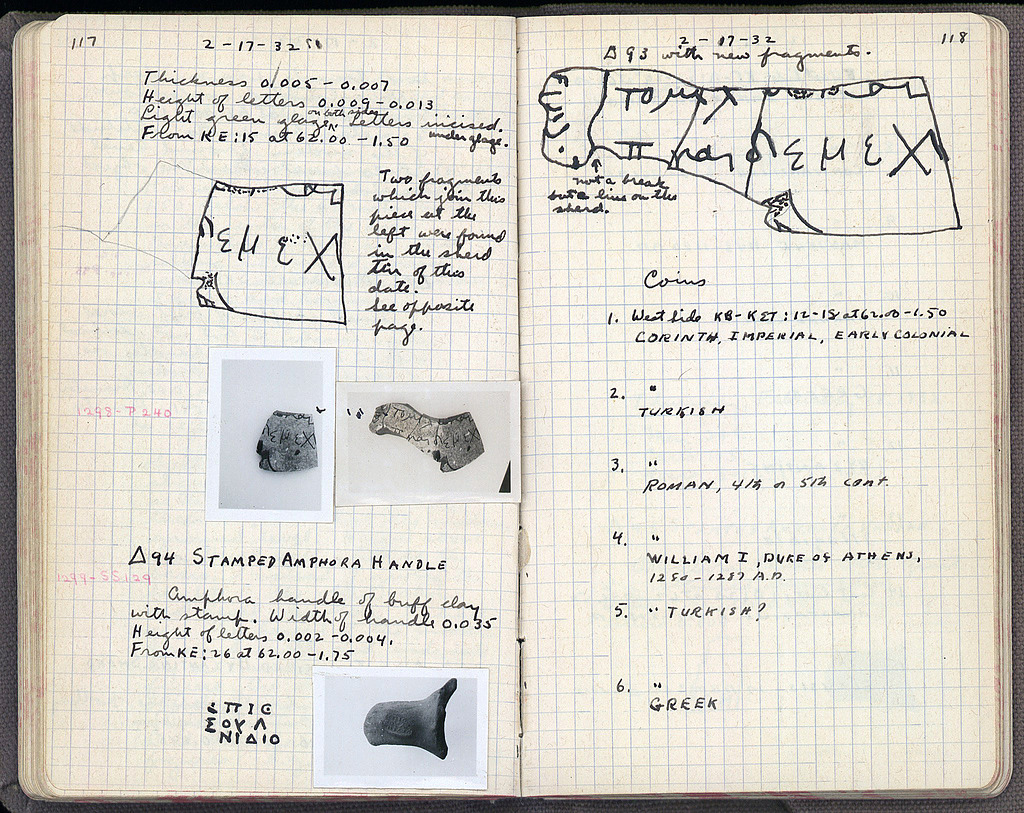 117
2-17-32
Thickness 0.005 - 0.007
Height of letters 0.009 - 0.013
Light green glaze on both sides, Letters incised under glaze.
From KE:15 at 62.00 - 1.50
Two fragments
which join this
piece at the
left were found
in the sherd
tin of this
date.
See opposite
page.
ΕΜΕΧ
1298-P 240
Δ94 STAMPED AMPHORA HANDLE
1299-SS 129
Amphora handle of buff clay
with stamp. Width of handle 0.035
Height of letters 0.002 - 0.004.
From KE:26 at 62.00 - 1.75
ΕΠΙΕ
ΣΟΥΛ
ΝΙΔΙΟ
118
2-17-32
Δ93 with new fragments.
ΕΜΕΧ
not a break
but a line on the
sherd.
Coins
1. West Side KB-KET:12-18 at 62.00-1.50
CORINTH, IMPERIAL, EARLY COLONIAL
2. "
TURKISH
3. "
ROMAN, 4th or 5th cent.
4. "
WILLIAM I, DUKE OF ATHENS,
1280-1287 A.D.
5. " TURKISH?
6. "
GREEK